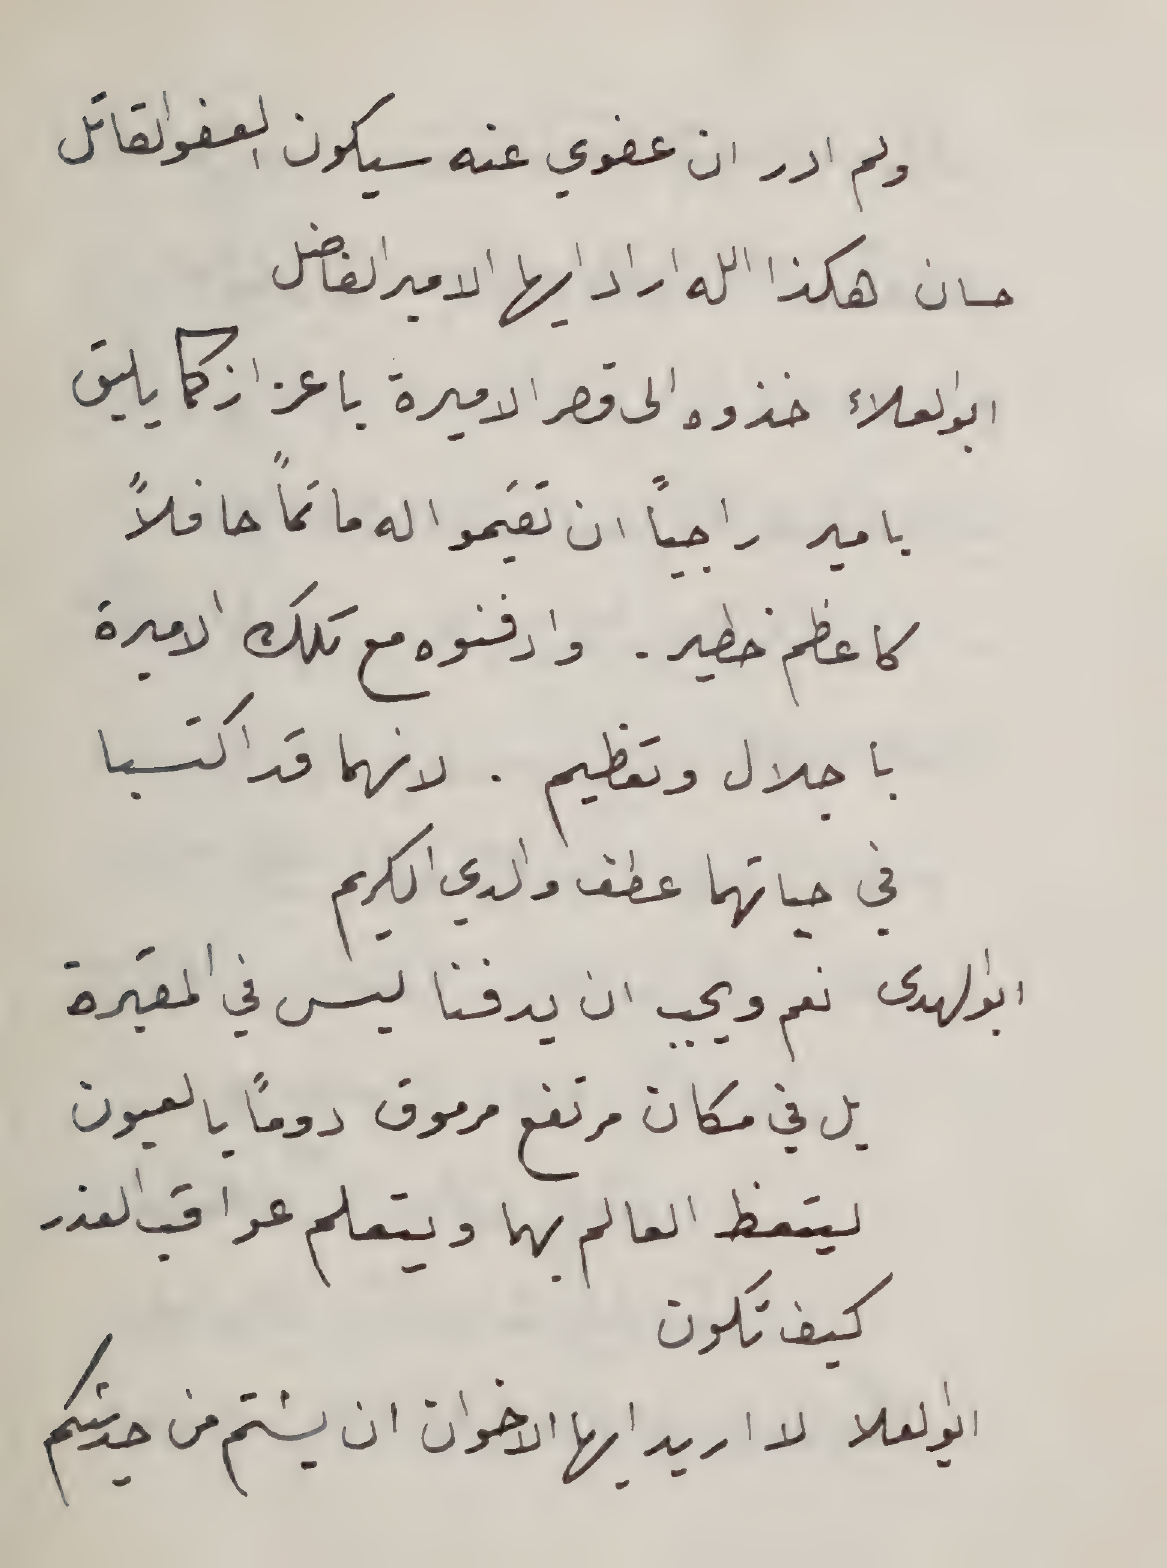 ولم ادر ان عفوي عنه سيكون العفو القاتل
حسان هكذا الله اراد ايها الامير الفاضل
ابو العلاء خذوه الى قصر الاميرة باعزاز كما يليق
بامير راجياً ان تقيموا له ماتماً حافلاً
كاعظم خطير . وادفنوه مع تلك الاميرة
باجلال وتعظيم . لانهما قد اكتسبا
في حياتهما عطف والدي الكريم
ابو الهدى نعم ويجب ان يدفنا ليس في المقبرة
بل في مكان مرتفع مرموق دوماً بالعيون
ليتعظ العالم بهما ويتعلم عواقب الغدر
كيف تكون
ابو العلا لا اريد ايها الاخوان ان يشتم من حديثكم